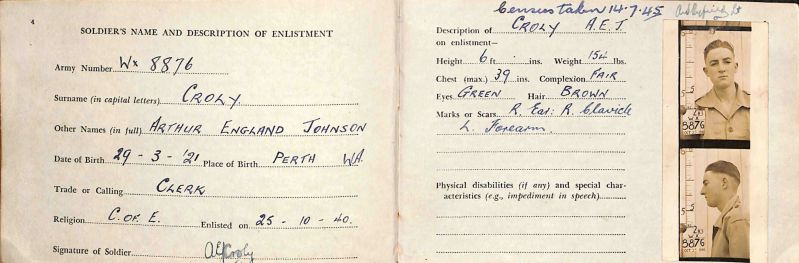 4
SOLDIER'S NAME AND DESCRIPTION OF ENLISTMENT
Army Number Wx 8876
Surname (in capital letters) CROLY.
Other Names (in full) ARTHUR ENGLAND JOHNSON
Date of Birth 29 - 3 - '21 Place of Birth PERTH WA.
Trade or Calling CLERK
Religion C. OF E. Enlisted on 25 - 10 - 40.
Signature of Soldier AEJCroly
Census taken 14.7.45
Description of CROLY A.E.J.
on enlistment—
Height 6 ft ins. Weight 154 lbs.
Chest (max.) 39 ins. Complexion FAIR
Eyes GREEN Hair BROWN
Marks or Scars R. Ear: R. Clavicle
L. Forearm.
Physical disabilities (if any) and special char-
acteristics (e.g., impediment in speech)
8876
8876